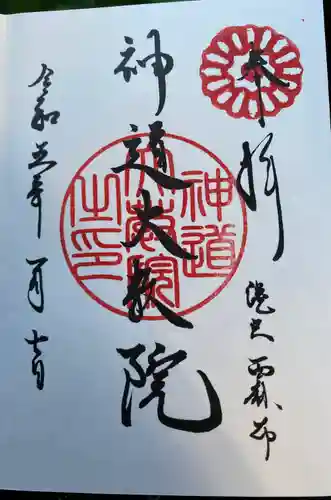 奉拝
港区 西麻布
神道大教院
神道大教院之印
令和五年 一月 十二日